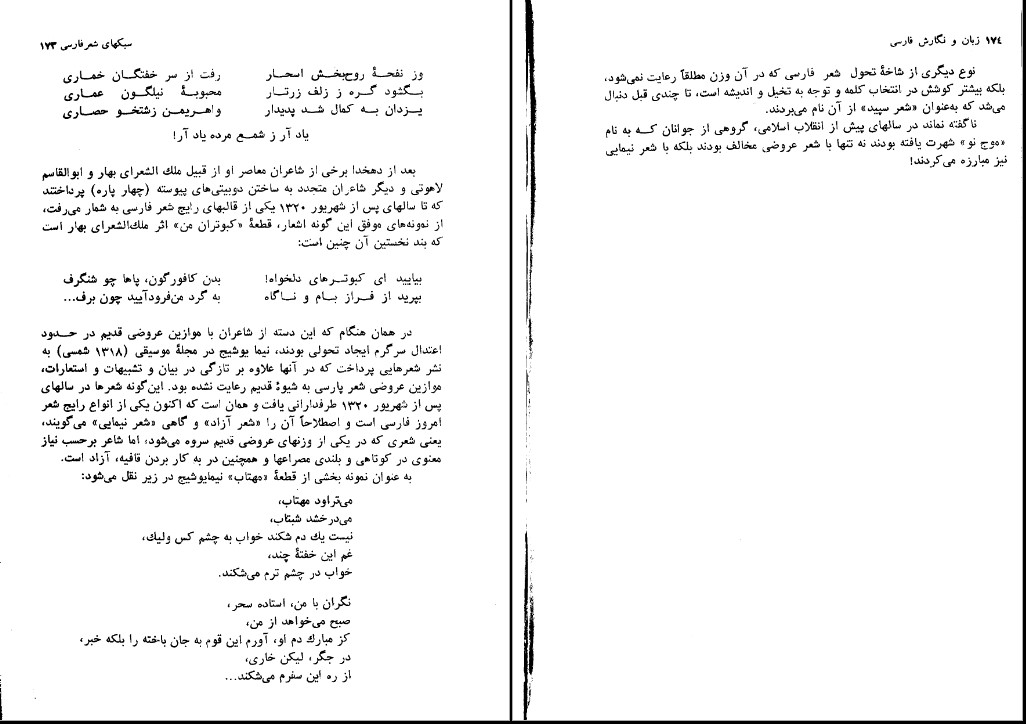 سبکهای شعر فارسی ۱۷۳
وز نفحهٔ روح‌بخش اسحار رفت از سر خفتگان خماری
بگشود گره ز زلف زرتار محبوبهٔ نیلگون عماری
یزدان به کمال شد پدیدار واهریمن زشتخو حصاری
یاد آر ز شمع مرده یاد آر!
بعد از دهخدا برخی از شاعران معاصر او از قبیل ملك الشعرای بهار و ابوالقاسم
لاهوتی و دیگر شاعران متجدد به ساختن دوبیتی‌های پیوسته (چهار پاره) پرداختند
که تا سالهای پس از شهریور ۱۳۲۰ یکی از قالبهای رایج شعر فارسی به شمار می‌رفت،
از نمونه‌های موفق این گونه اشعار، قطعهٔ «کبوتران من» اثر ملك‌الشعرای بهار است
که بند نخستین آن چنین است:
بیایید ای کبوترهای دلخواه! بدن کافورگون، پاها چو شنگرف
بپرید از فراز بام و ناگاه به گرد من‌فرودآیید چون برف...
در همان هنگام که این دسته از شاعران با موازین عروضی قدیم در حدود
اعتدال سرگرم ایجاد تحولی بودند، نیما یوشیج در مجلهٔ موسیقی (۱۳۱۸ شمسی) به
نشر شعرهایی پرداخت که در آنها علاوه بر تازگی در بیان و تشبیهات و استعارات،
موازین عروضی شعر پارسی به شیوهٔ قدیم رعایت نشده بود. این‌گونه شعرها در سالهای
پس از شهریور ۱۳۲۰ طرفدارانی یافت و همان است که اکنون یکی از انواع رایج شعر
امروز فارسی است و اصطلاحاً آن را «شعر آزاد» و گاهی «شعر نیمایی» می‌گویند،
یعنی شعری که در یکی از وزنهای عروضی قدیم سروه می‌شود، اما شاعر برحسب نیاز
معنوی در کوتاهی و بلندی مصراعها و همچنین در به کار بردن قافیه، آزاد است.
به عنوان نمونه بخشی از قطعهٔ «مهتاب» نیمایوشیج در زیر نقل می‌شود:
می‌تراود مهتاب،
می‌درخشد شبتاب،
نیست یك دم شکند خواب به چشم کس ولیك،
غم این خفتهٔ چند،
خواب در چشم ترم می‌شکند.
نگران با من، استاده سحر،
صبح می‌خواهد از من،
کز مبارك دم او، آورم این قوم به جان باخته را بلکه خبر،
در جگر، لیکن خاری،
از ره این سفرم می‌شکند...
۱۷٤ زبان و نگارش فارسی
نوع دیگری از شاخهٔ تحول شعر فارسی که در آن وزن مطلقاً رعایت نمی‌شود،
بلکه بیشتر کوشش در انتخاب کلمه و توجه به تخیل و اندیشه است، تا چندی قبل دنبال
می‌شد که به‌عنوان «شعر سپید» از آن نام می‌بردند.
ناگفته نماند در سالهای پیش از انقلاب اسلامی، گروهی از جوانان که به نام
«موج نو» شهرت یافته بودند نه تنها با شعر عروضی مخالف بودند بلکه با شعر نیمایی
نیز مبارزه می‌کردند!